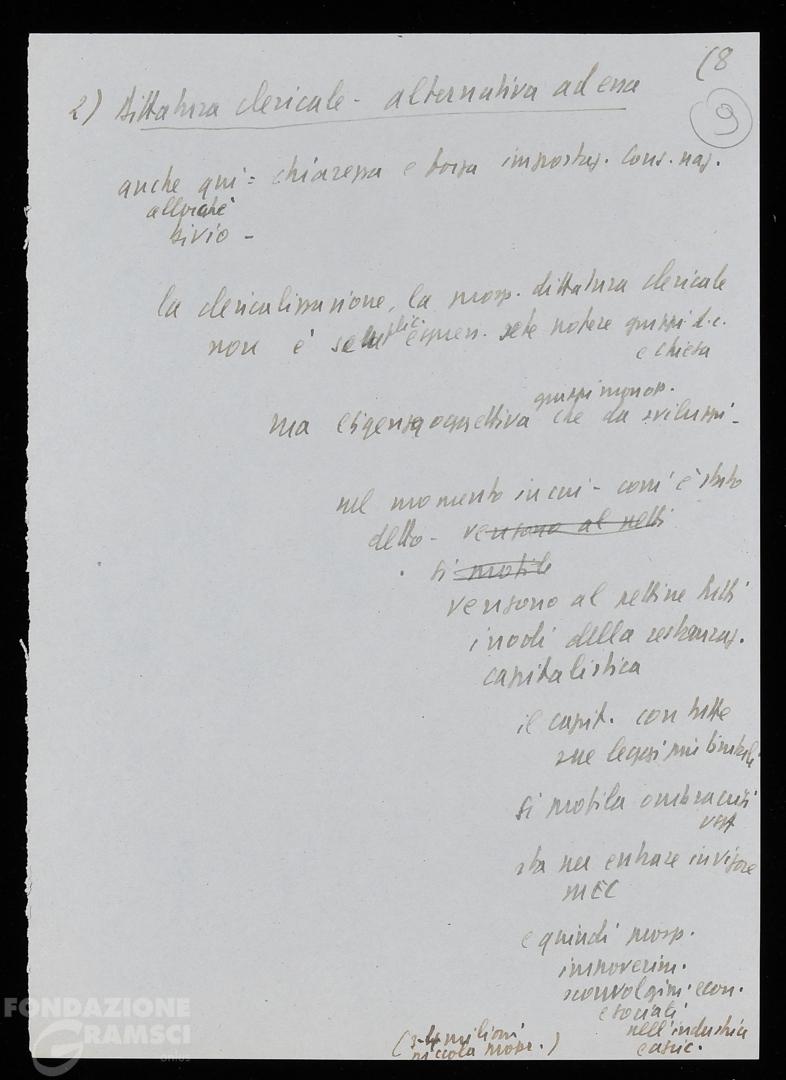 (8
9
2) Dittatura clericale - alternativa ad essa
anche qui = chiarezza e forza impostaz. Cons. naz.
allorché
bivio -
la clericalizzazione, la prosp. dittatura clericale
non è esplic. sete potere gruppi d.c.
e Chiesa
gruppi monop.
ma esigenza oggettiva che da sviluppi -
nel momento in cui - com' è stato
detto - vengono al petti
si profila
vengono al pettine tutti
i nodi della restauraz.
capitalistica
il capit. con tutte
sue leggi più brutali
si profila ombra crisi
sta per entrare in vigore
MEC
e quindi prosp.
impoverim.
sconvolgim. econ.
e sociali
nell'industria
e agric.
(3-4 milioni
piccola propr.)
FONDAZIONE
GRAMSCI
onlus